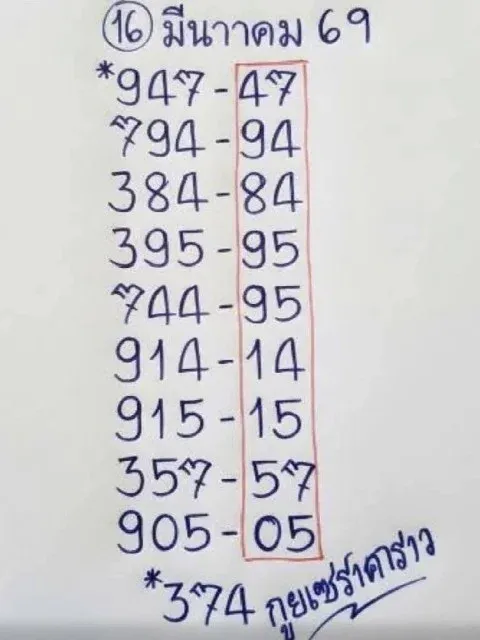 16 มีนาาคม 69
*947-47
794-94
384-84
395-95
744-95
914-14
915-15
357-57
905-05
*374